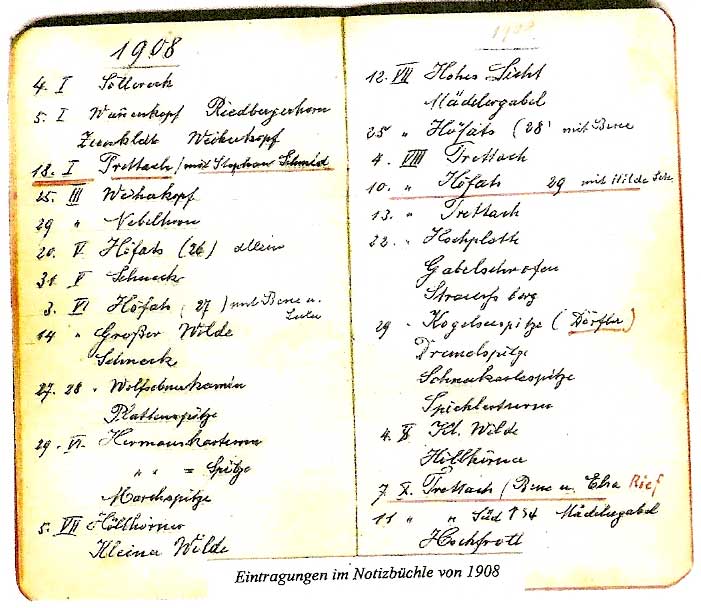 1908
4. I Söllereck
5. I Wannenkopf Riedbergerhorn
Weiherkopf
18. I Trettach (mit Stephan Schmid
25. III Weiherkopf
29 " Nebelhorn
20. V Höfats (26) allein
31. V Schneck
3. VI Höfats (27) mit Bene u.
14 " Großer Wilde
Schneck
27. 28 "
Plattenspitze
29. VI. Hermannskarturm
" " = Spitze
Marchspitze
5. VII Höllhörner
Kleiner Wilde
1908
12. VII Hohes Licht
Mädelergabel
25 " Höfats (28' mit Bene
4. VIII Trettach
10. " Höfats 29 mit Hilde
13. " Trettach
22. " Hochplatte
Gabelschrofen
Straussberg
29 " Kogelseespitze (Dörfler)
Dremelspitze
Schneekarlespitze
Spiehlerturm
4. X Kl. Wilde
Höllhörner
7. X. Trettach (Bene u. Elsa Rief
11 " " Süd Mädelergabel
Hochfrott
Eintragungen im Notizbüchle von 1908